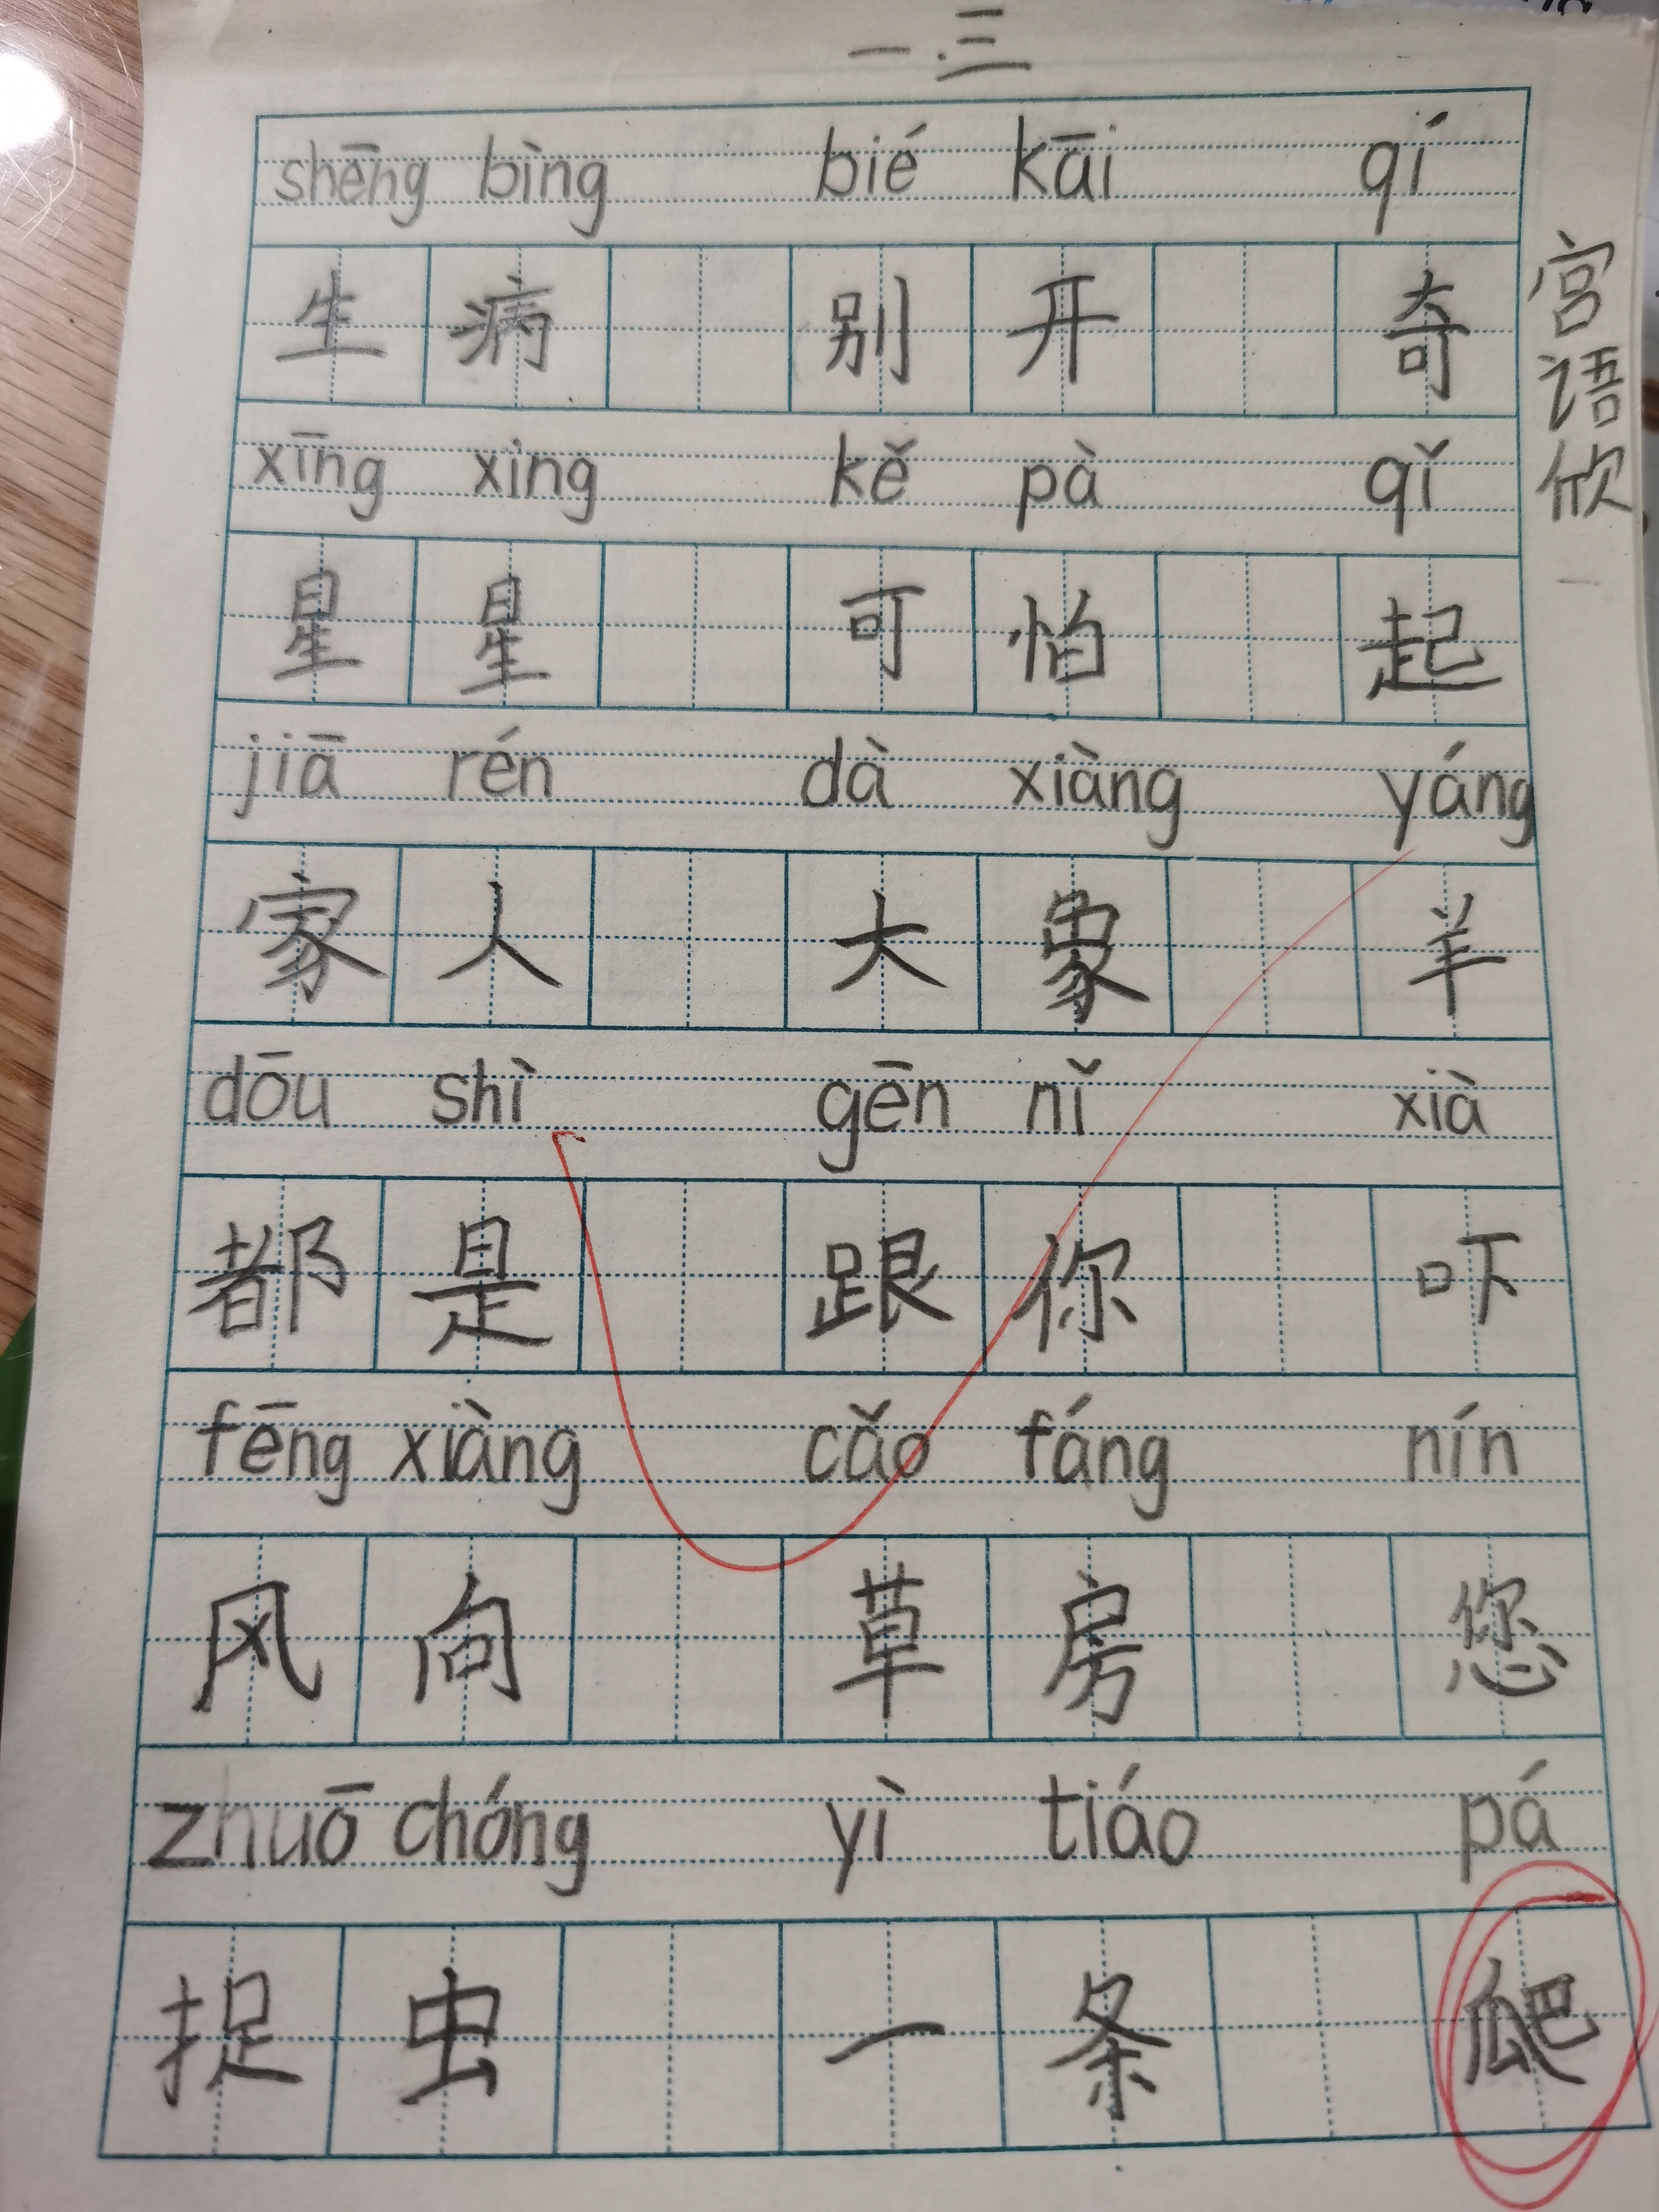 一.三
shēng bìng bié kāi qí
生病 别开 奇
xīng xing kě pà qǐ
星星 可怕 起
jiā rén dà xiàng yáng
家人 大象 羊
dōu shì gēn nǐ xià
都是 跟你 吓
fēng xiàng cǎo fáng nín
风向 草房 您
zhuō chóng yì tiáo pá
捉虫 一条 爬
宫语欣